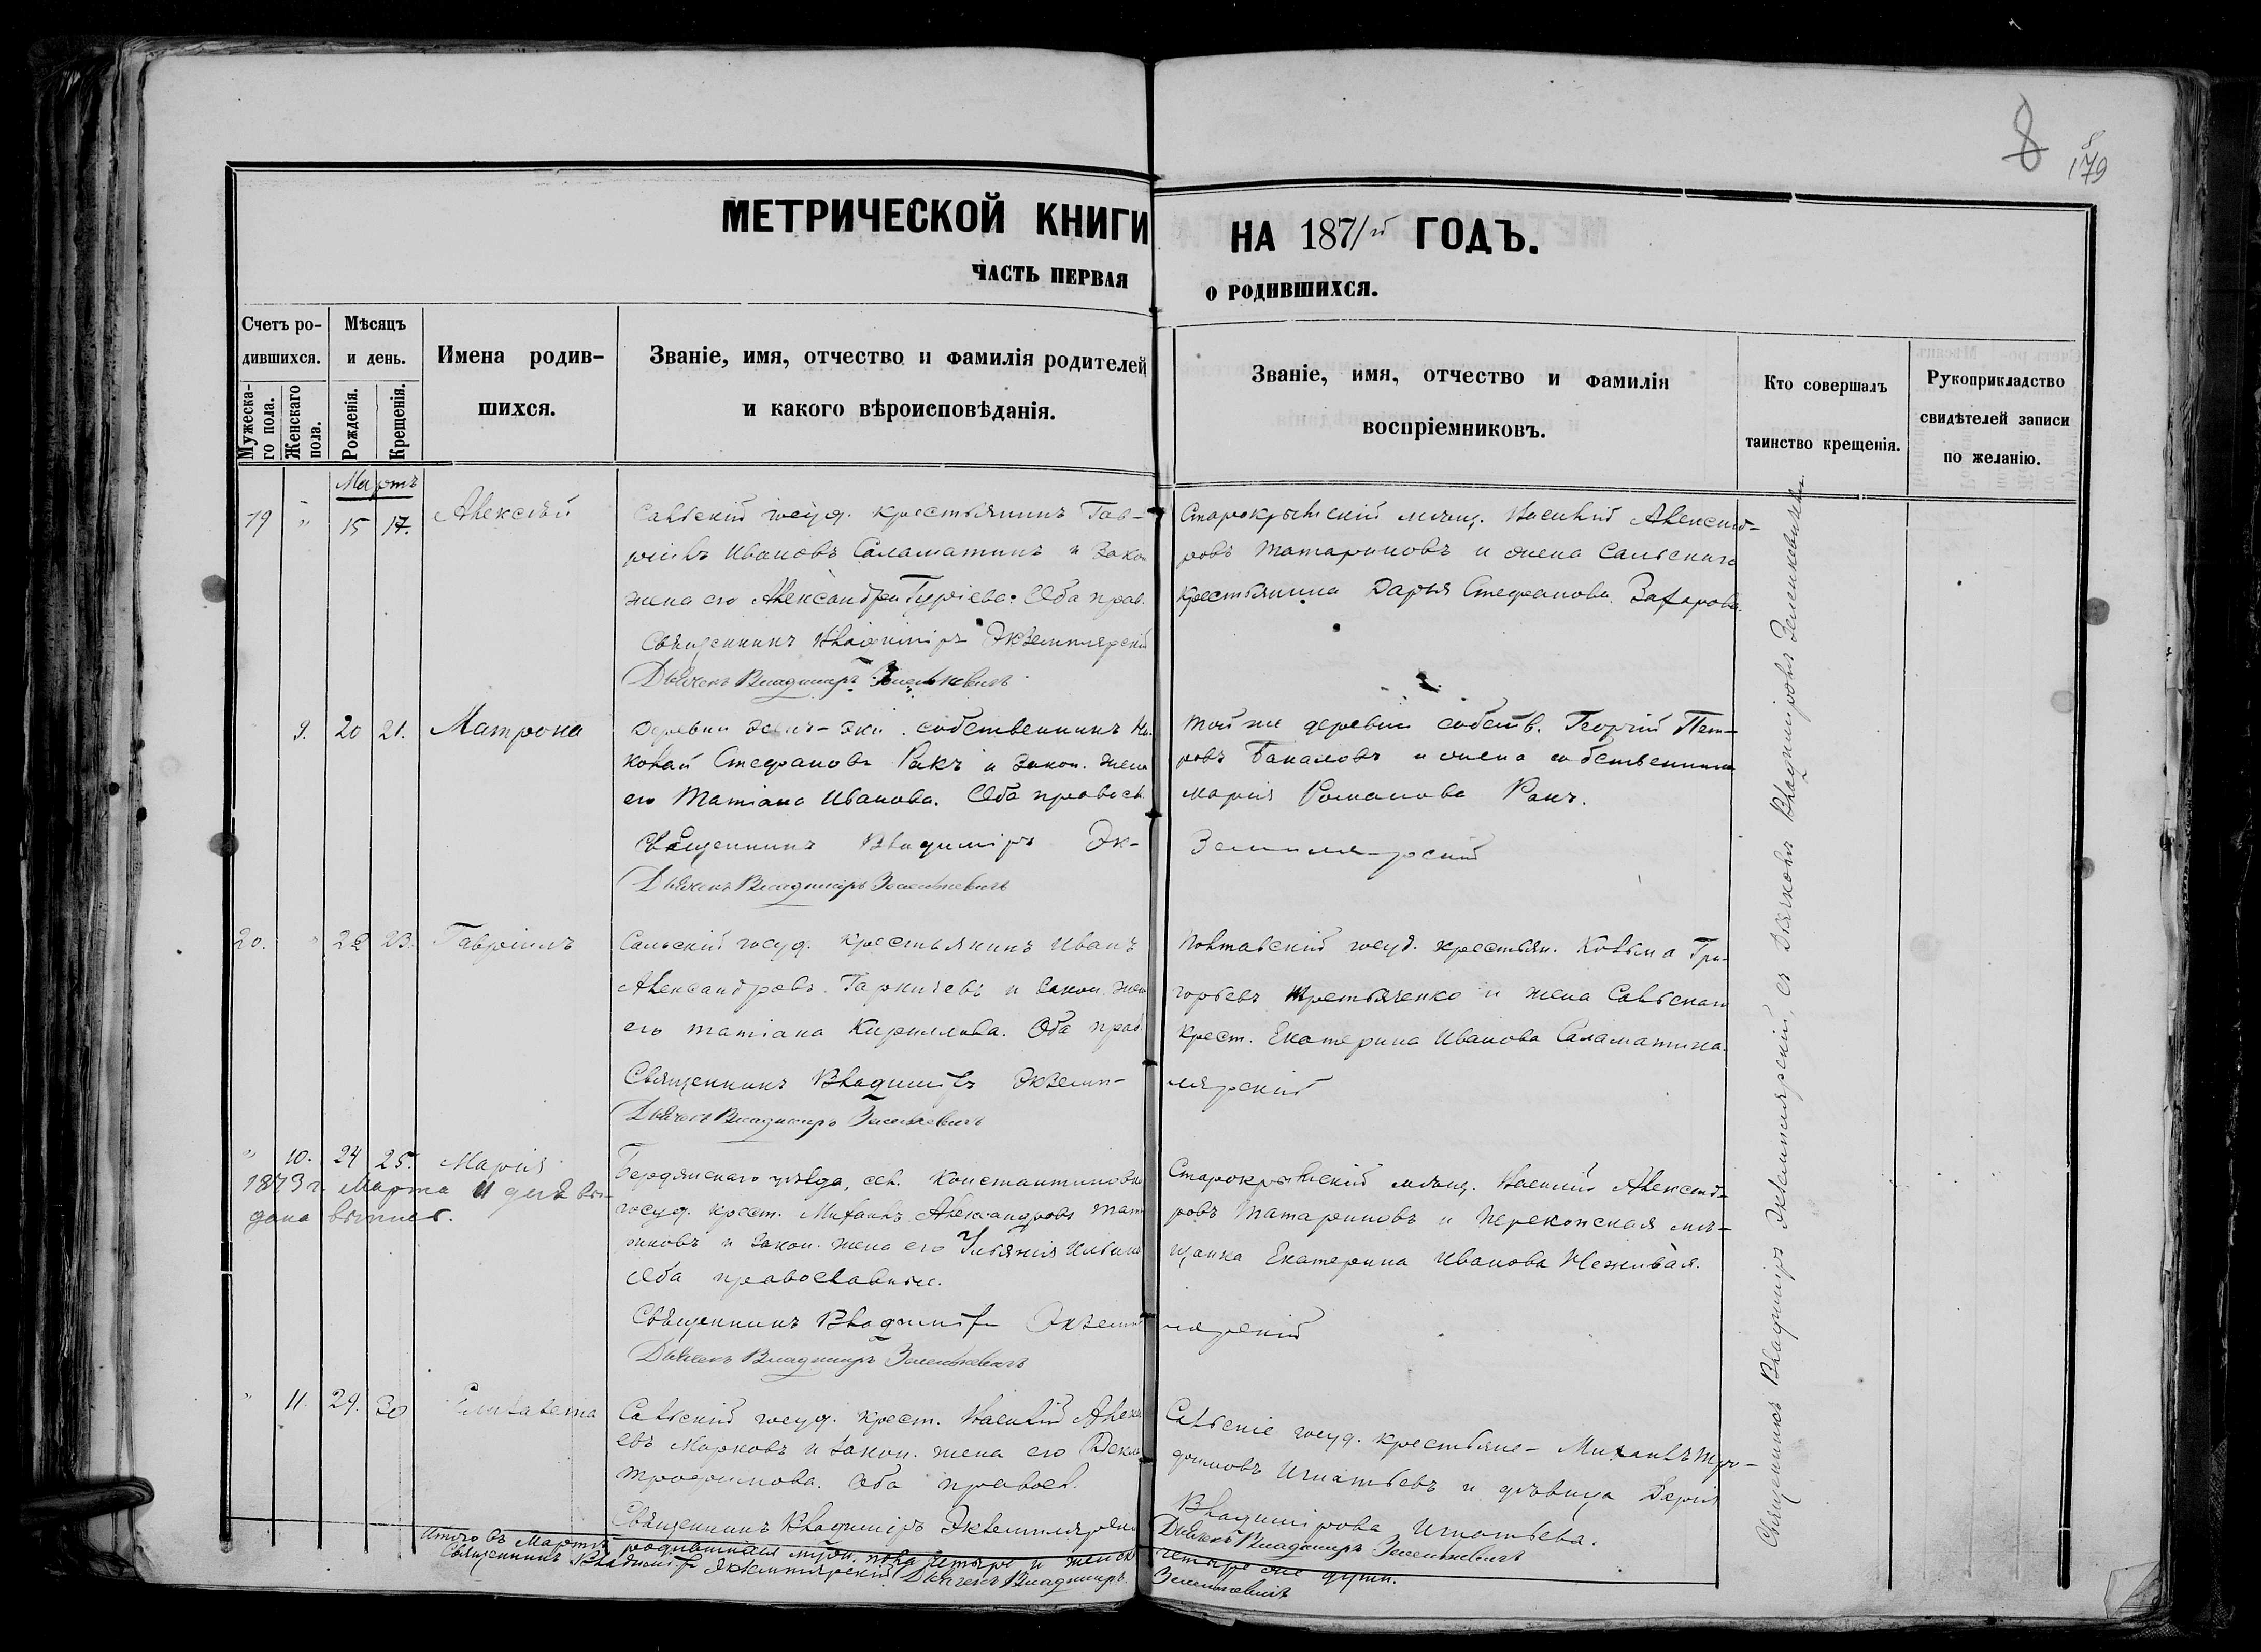 8
8
179
МЕТРИЧЕСКОЙ КНИГИ НА 1871й ГОДЪ.
ЧАСТЬ ПЕРВАЯ О РОДИВШИХСЯ.
Счетъ ро-
дившихся.
Мужеска-
го пола.
Женскаго
пола.
Мѣсяцъ
и день.
Рожденія.
Крещенія.
Имена родив-
шихся.
Званіе, имя, отчество и фамилія родителей
и какого вѣроисповѣданія.
Званіе, имя, отчество и фамилія
воспріемниковъ.
Кто совершалъ
таинство крещенія.
Рукоприкладство
свидѣтелей записи
по желанію.
Мартъ
19 " 15 17. Алексѣй
Сальскій госуд. крестьянинъ Гав-
ріилъ Ивановъ Саламатинъ и закон
жена его Александра Гуріева. Оба прав.
Священникъ Владиміръ Экземплярскій
Дьячекъ Владиміръ Зеленкевичъ
Старокрымскій мѣщ. Василій Александ-
ровъ Татариновъ и жена Сальскаго
крестьянина Дарья Стефанова Захарова.
9. 20 21. Матрона
Деревни собственникъ Ни-
колай Стефановъ Ракъ и закон. жена
его Татіана Иванова. Оба правосл.
Священникъ Владиміръ Эк- земплярскій
Дьячекъ Владиміръ Зеленкевичъ
Той же деревни собств. Георгій Пет-
ровъ и жена собственника
Марія Романова Ракъ.
20. " 22 23. Гавріилъ
Сальскій госуд. крестьянинъ Иванъ
Александровъ и закон. жена
его Татіана Кирилова. Оба прав.
Священникъ Владиміръ Экземп- лярскій
Дьячекъ Владиміръ Зеленкевичъ
Полтавскій госуд. крестьян. Козьма Гри-
горьевъ Третьяченко и жена Сальскаго
крест. Екатерина Иванова Саламатина.
" 10. 24 25. Марія
1873 г. Марта 11 дня вы-
дана выпись.
Бердянскаго уѣзда, сел. Константиновки
госуд. крест. Михаилъ Александровъ Тата-
риновъ и закон. жена его Ульянія Ильина
Оба православные.
Священникъ Владиміръ Экземп лярскій
Дьячекъ Владиміръ Зеленкевичъ
Старокрымскій мѣщ. Василій Александ-
ровъ Татариновъ и Перекопская мѣ-
щанка Екатерина Иванова Неживая.
" 11. 29. 30 Елизавета
Сальскій госуд. крест. Василій Алекс
евъ Марковъ и закон. жена его
Трофимова. Оба правосл.
Священникъ Владиміръ Экземплярскій
Сальскіе госуд. крестьяне - Михаилъ Тро-
фимовъ Игнатьевъ и дѣвица Дарія
Владимірова Игнатьева.
Дьячекъ Владиміръ Зеленкевичъ
Итого въ Мартѣ родившихся муж. пола четыре и женск четыре же души.
Священникъ Владиміръ Экземплярскій Дьячекъ Владиміръ Зеленкевичъ
Священникъ Владиміръ Экземплярскій, съ Дьячкомъ Владиміромъ Зеленкевичемъ